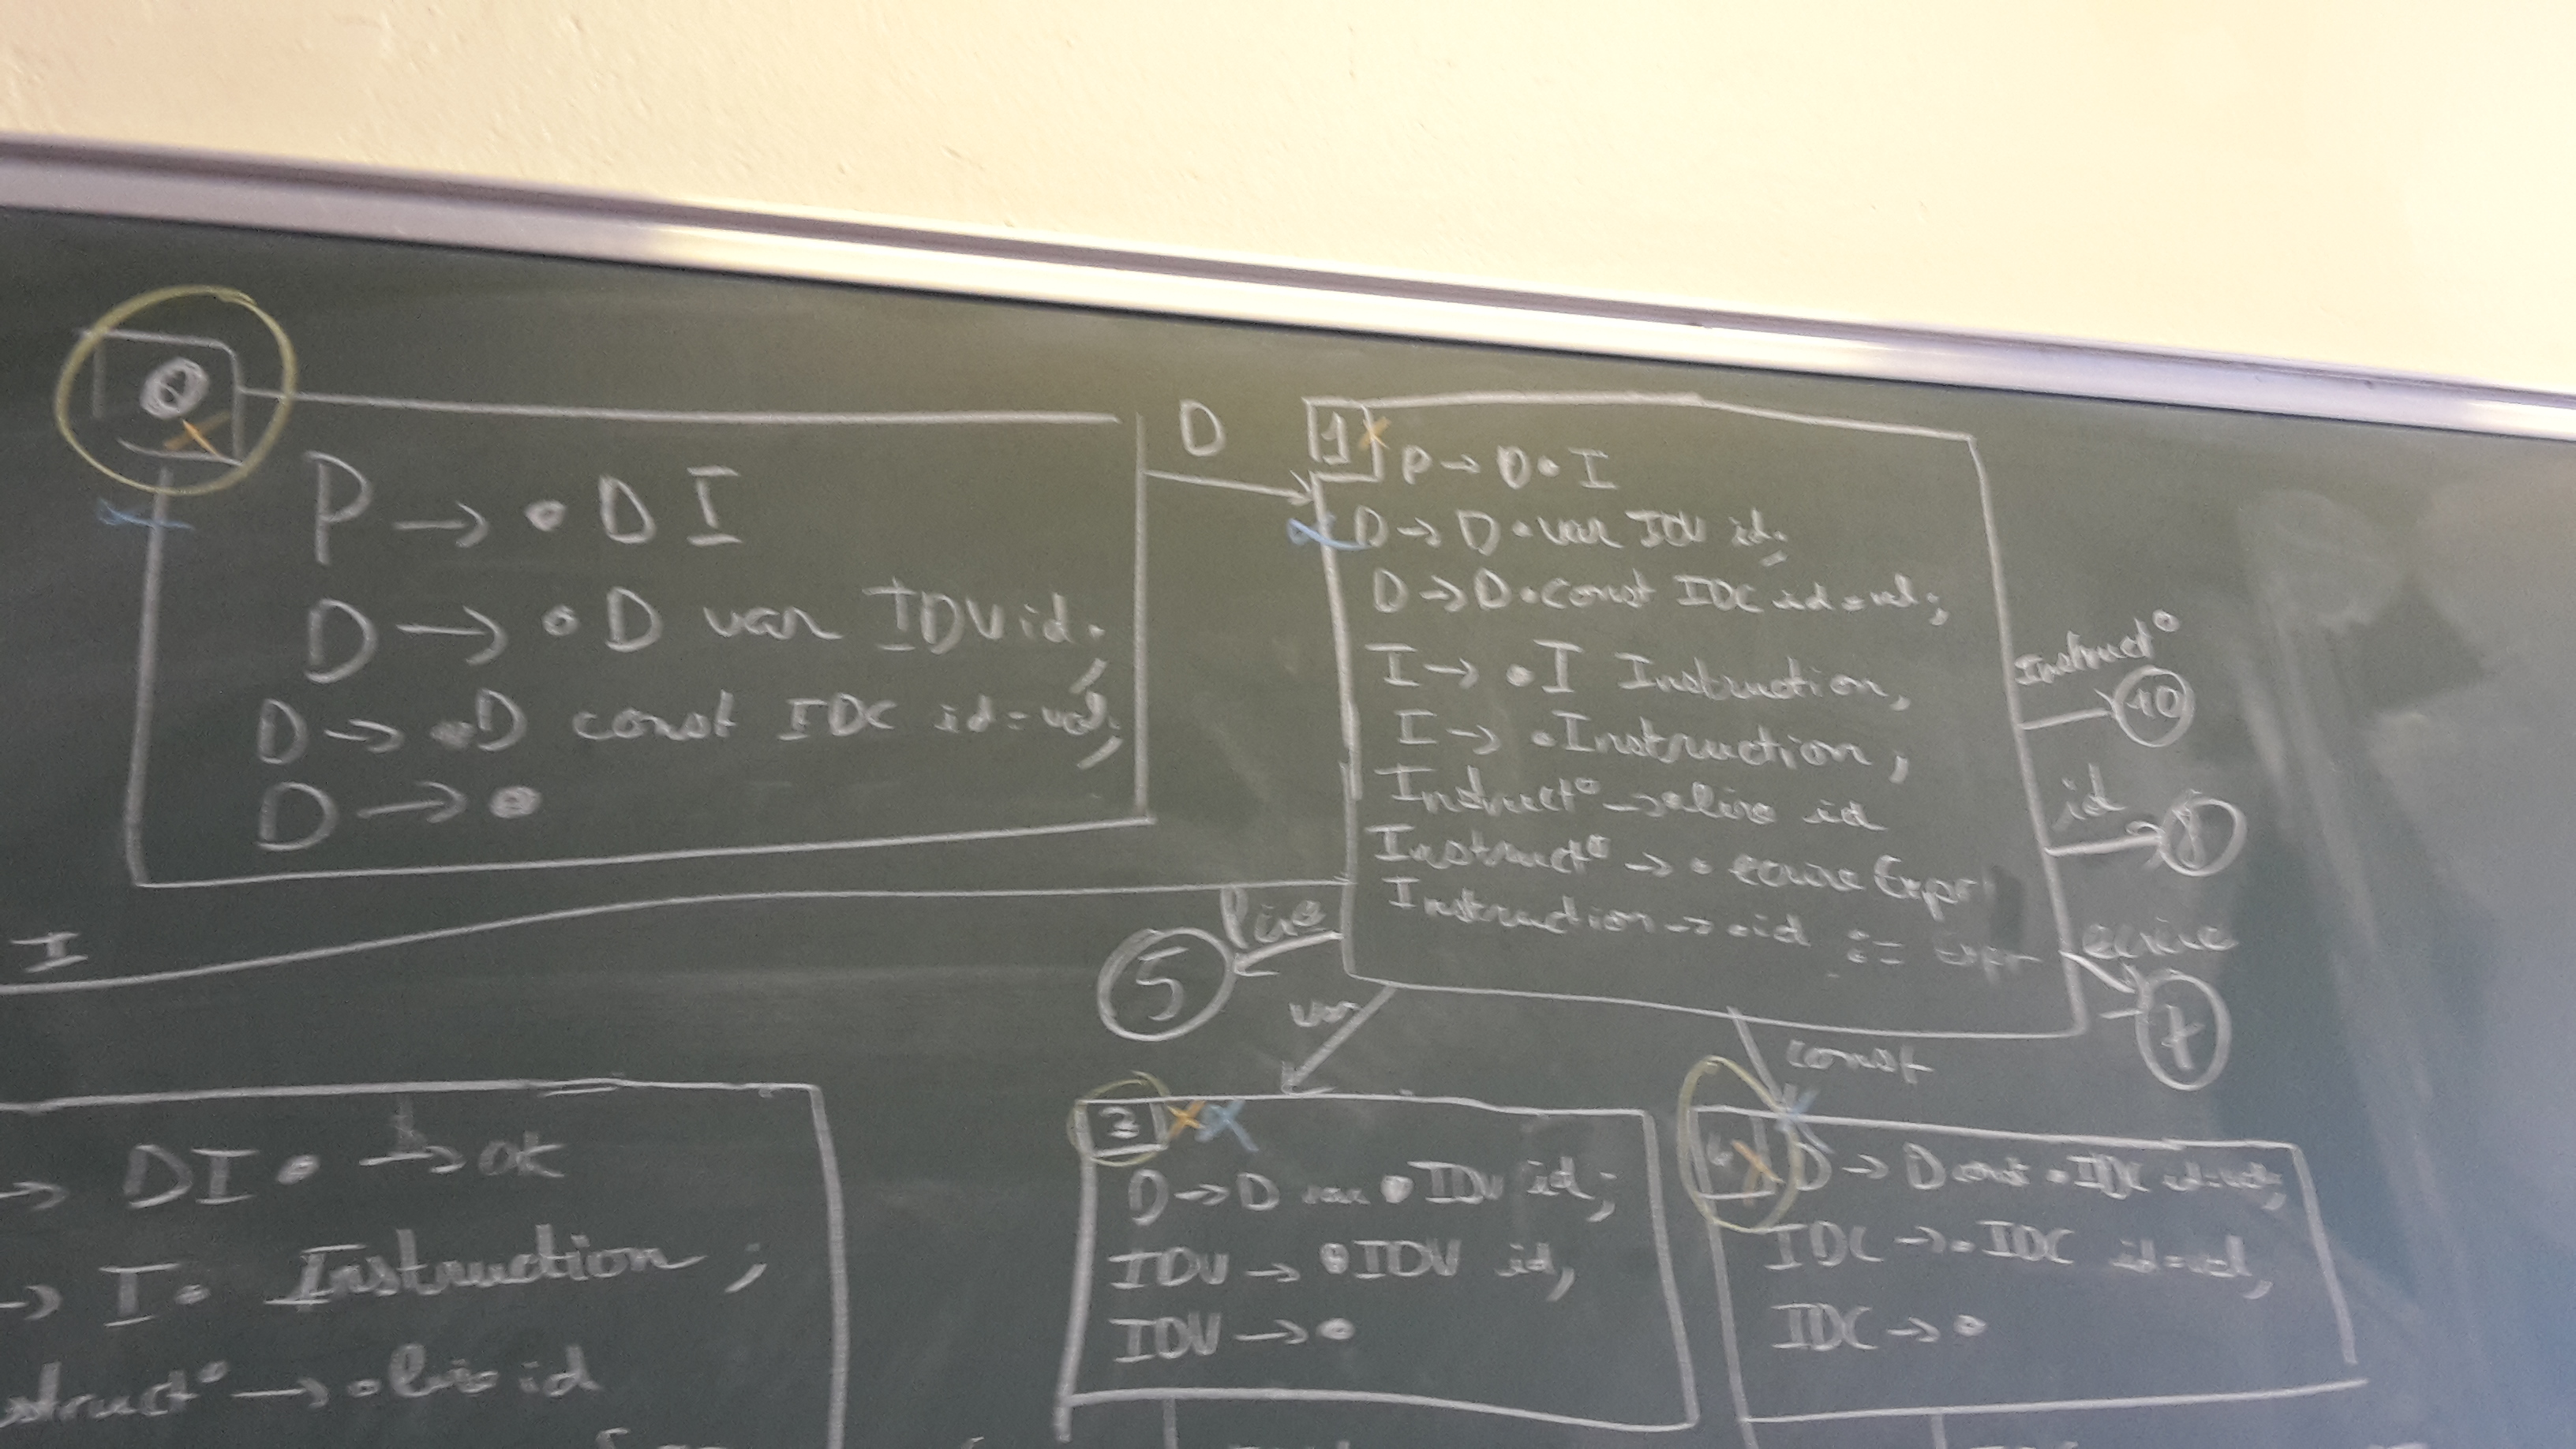 0
P → • D I
D → • D var IDV id;
D → • D const IDC id = val;
D → •
D
1
P → D • I
D → D • var IDV id;
D → D • const IDC id = val;
I → • I Instruction;
I → • Instruction;
Instruct° → • lire id
Instruct° → • ecrire Expr
Instruction → • id := Expr
Instruct°
10
id
8
ecrire
7
I
lire
5
var
const
→ DI • → ok
→ I • Instruction ;
struct° → • lire id
D → D var • IDV id;
IDV → • IDV id,
IDV → •
D → D const • IDC id = val;
IDC → • IDC id = val,
IDC → •